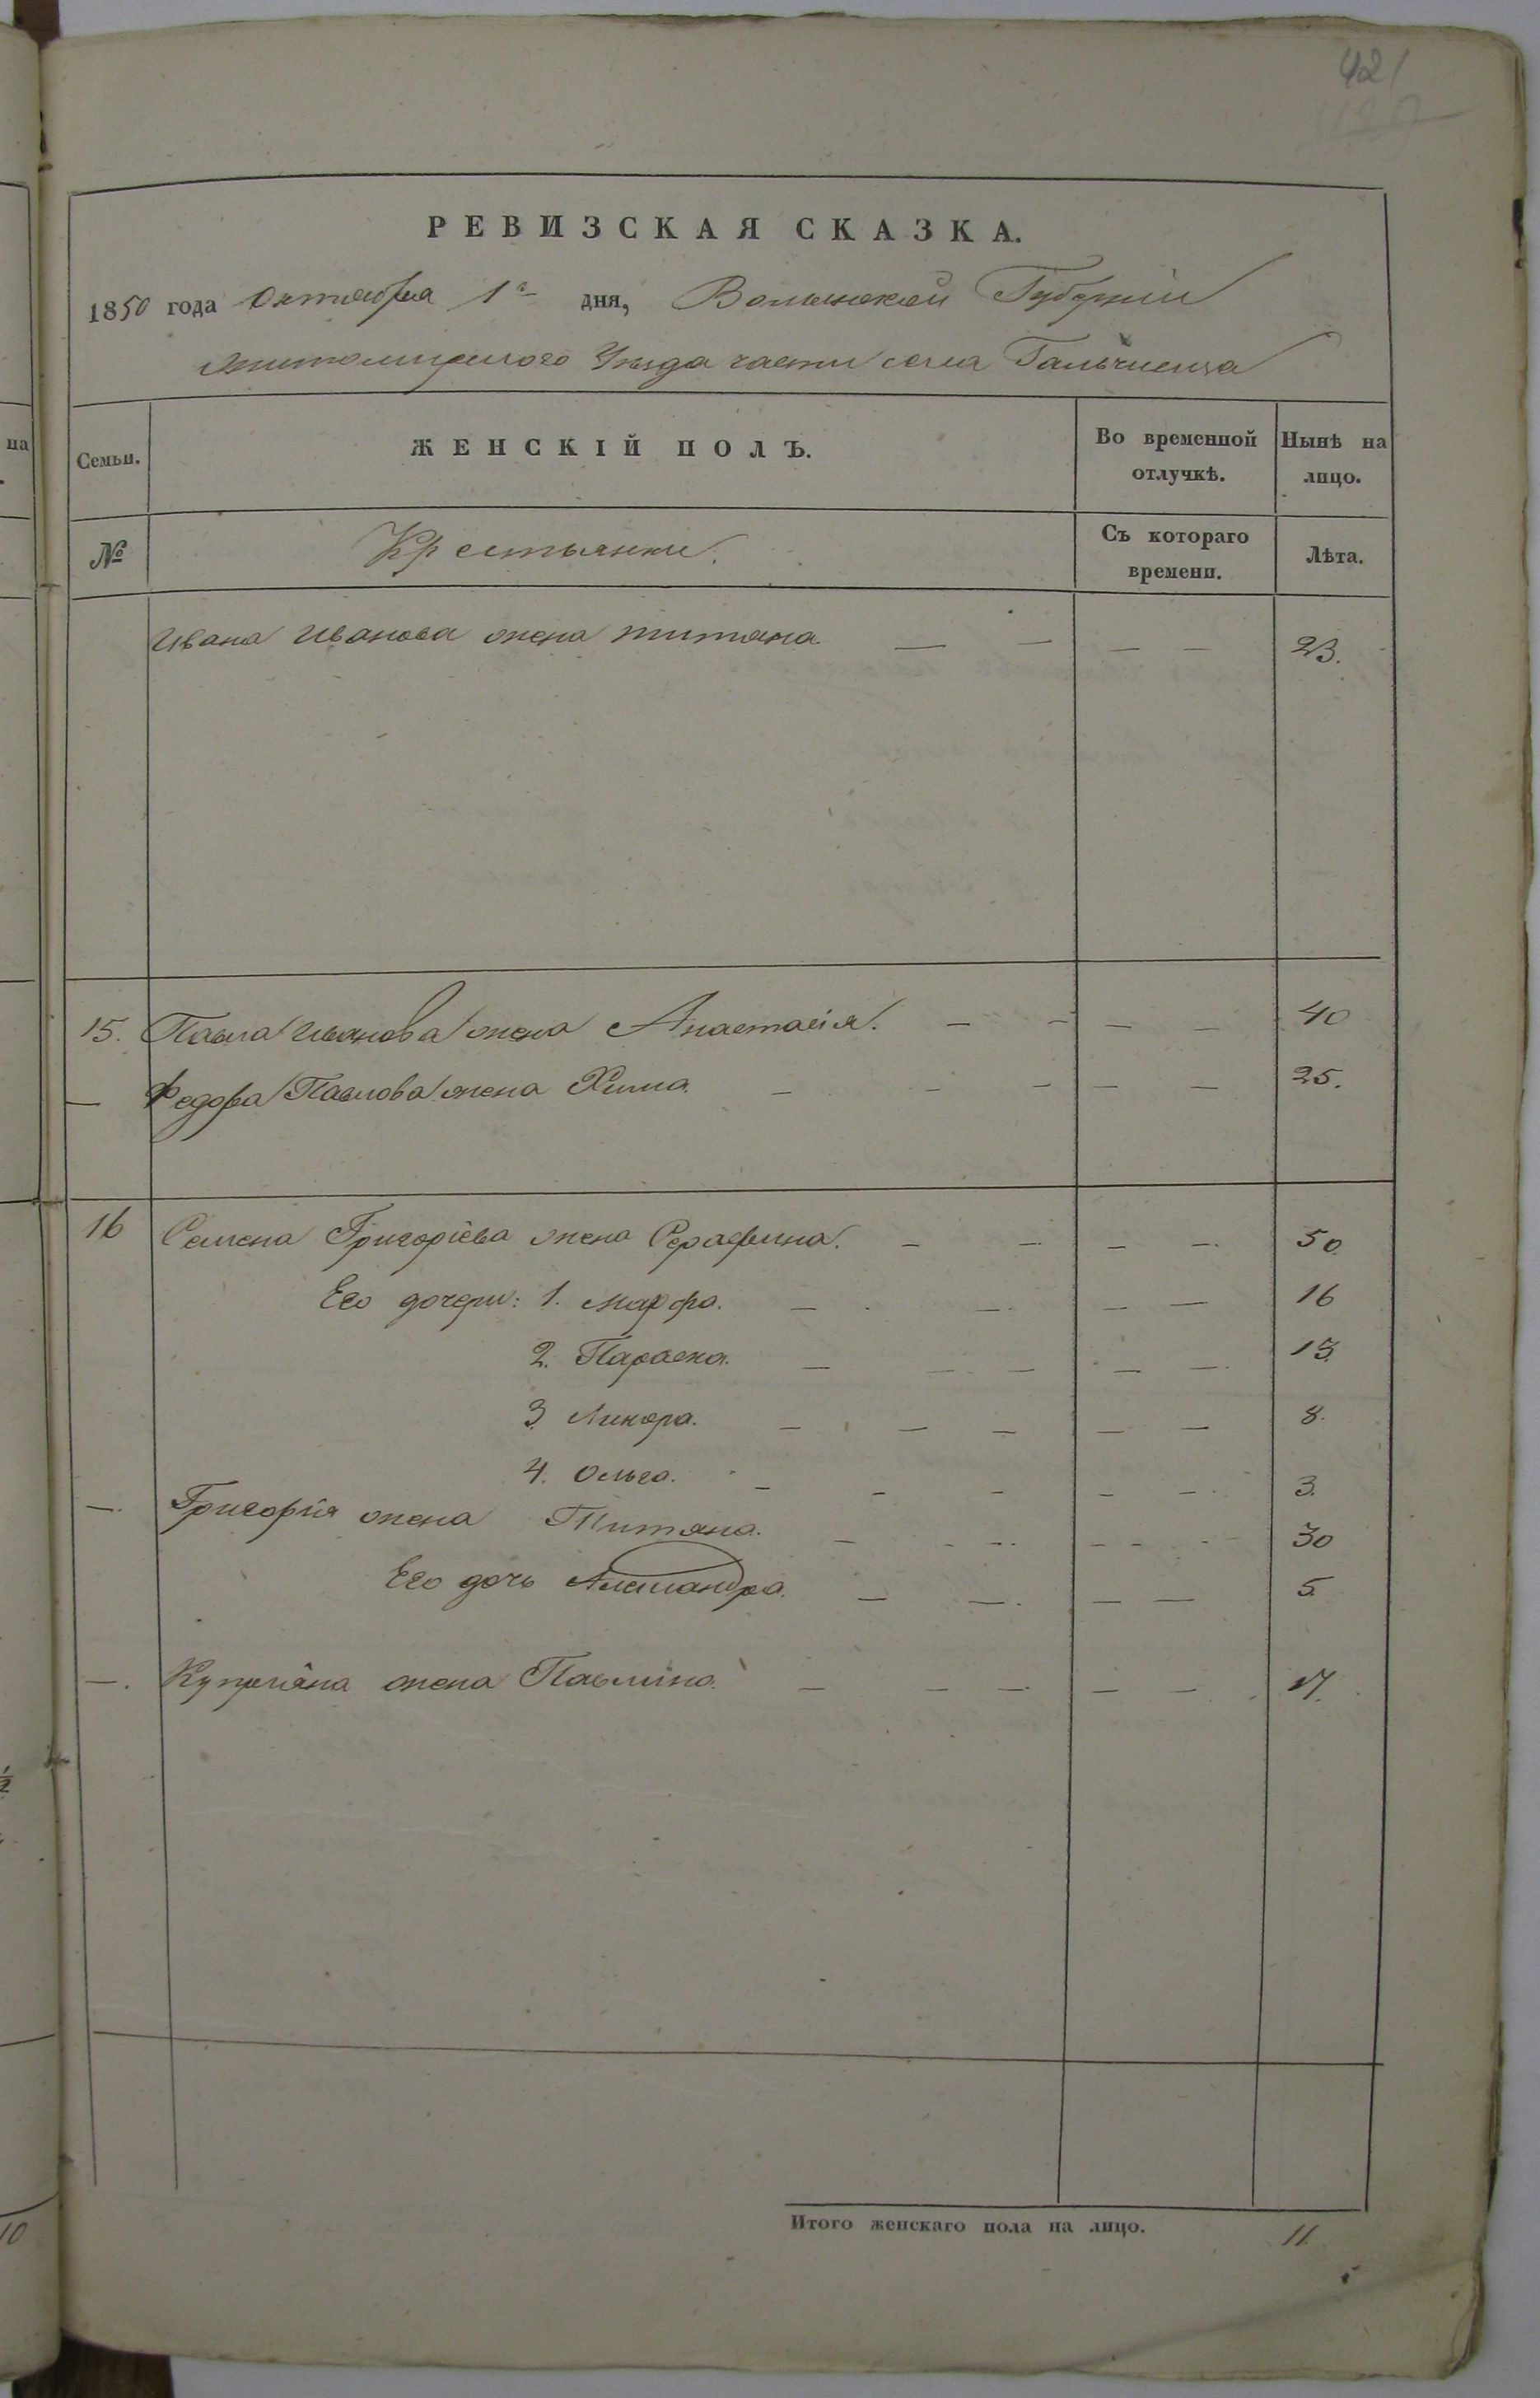 421
РЕВИЗСКАЯ СКАЗКА.
1850 года Октября 1го дня, Волынской Губернiи
Житомирского Уезда части села Гальчинца
Семьи. ЖЕНСКІЙ ПОЛЪ. Во временной отлучкѣ. Нынѣ на лицо.
№ Крестьянки. Съ котораго времени. Лѣта.
Ивана Иванова жена Титяна. — — — — 23.
15. Павла Иванова жена Анастасія. — — — — 40
— Федора Павлова жена Хима. — — — — — 25.
16 Семена Григоріева жена Серафина. — — — — 50
Его дочери: 1. Марфа. — — — — 16
2. Параска. — — — — — 13.
3. Ликера. — — — — — 8.
4. Ольга. — — — — — 3.
—. Григорія жена Титяна. — — — — — 30
Его дочь Александра. — — — — 5.
—. Купріяна жена Павлина. — — — — — 17.
Итого женскаго пола на лицо. 11.
на
10